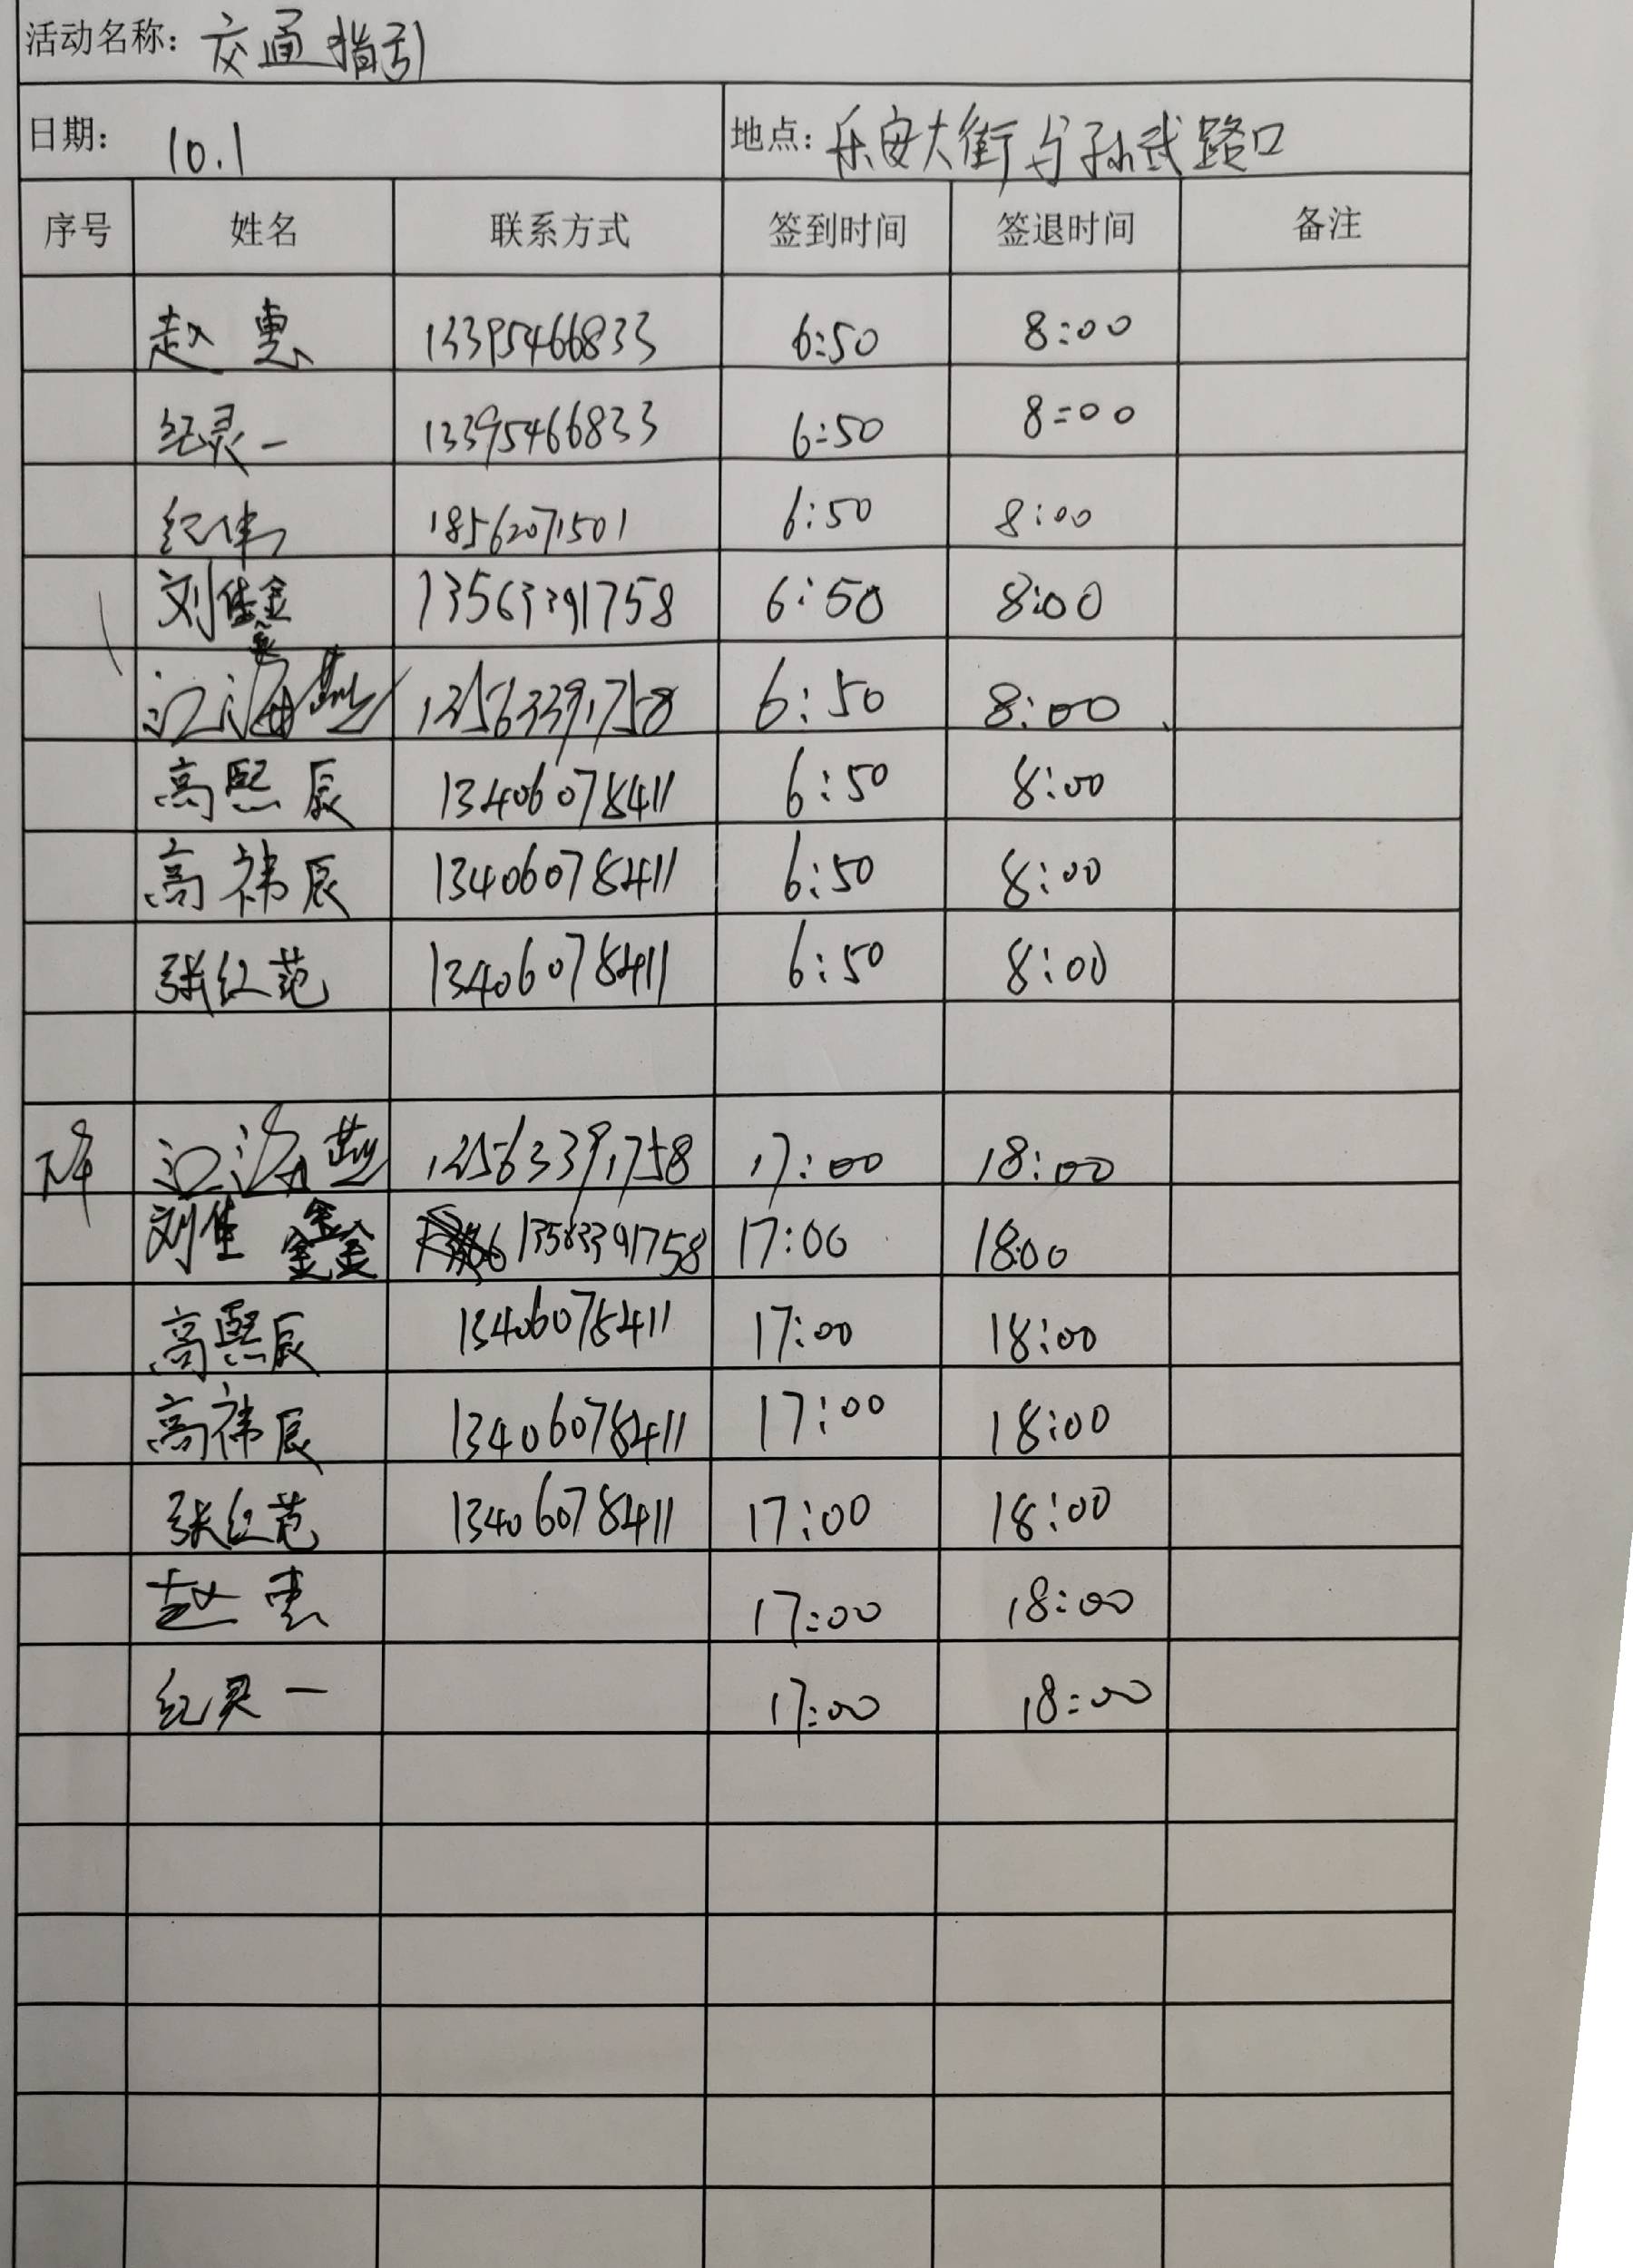 活动名称：交通指引
日期：10.1 地点：乐安大街与孙武路口
序号 姓名 联系方式 签到时间 签退时间 备注
赵惠 13395466833 6:50 8:00
纪灵一 13395466833 6:50 8:00
纪伟 18562071501 6:50 8:00
刘佳鑫 13563391758 6:50 8:00
江海燕 13563391758 6:50 8:00
高熙辰 13406078411 6:50 8:00
高祎辰 13406078411 6:50 8:00
张红范 13406078411 6:50 8:00
下午 江海燕 13563391758 17:00 18:00
刘佳鑫 13563391758 17:00 18:00
高熙辰 13406078411 17:00 18:00
高祎辰 13406078411 17:00 18:00
张红范 13406078411 17:00 18:00
赵惠 17:00 18:00
纪灵一 17:00 18:00